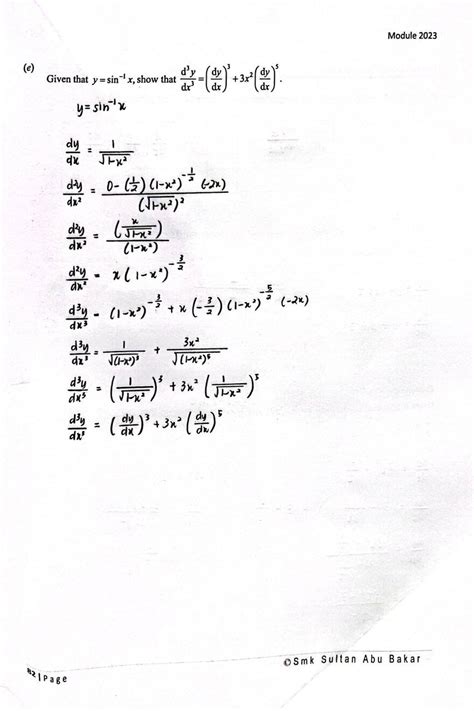 Module 2023
(e)
Given that y = sin⁻¹ x, show that d³y/dx³ = (dy/dx)³ + 3x²(dy/dx)⁵.
y = sin⁻¹x
dy/dx = 1/√(1-x²)
d²y/dx² = 0-(½)(1-x²)^(-1/2) (-2x) / (√(1-x²))²
d²y/dx² = (x/√(1-x²)) / (1-x²)
d²y/dx² = x(1-x²)^(-3/2)
d³y/dx³ = (1-x²)^(-3/2) + x(-3/2)(1-x²)^(-5/2) (-2x)
d³y/dx³ = 1/√(1-x²)³ + 3x²/√(1-x²)⁵
d³y/dx³ = (1/√(1-x²))³ + 3x²(1/√(1-x²))⁵
d³y/dx³ = (dy/dx)³ + 3x²(dy/dx)⁵
©Smk Sultan Abu Bakar
82 | Page